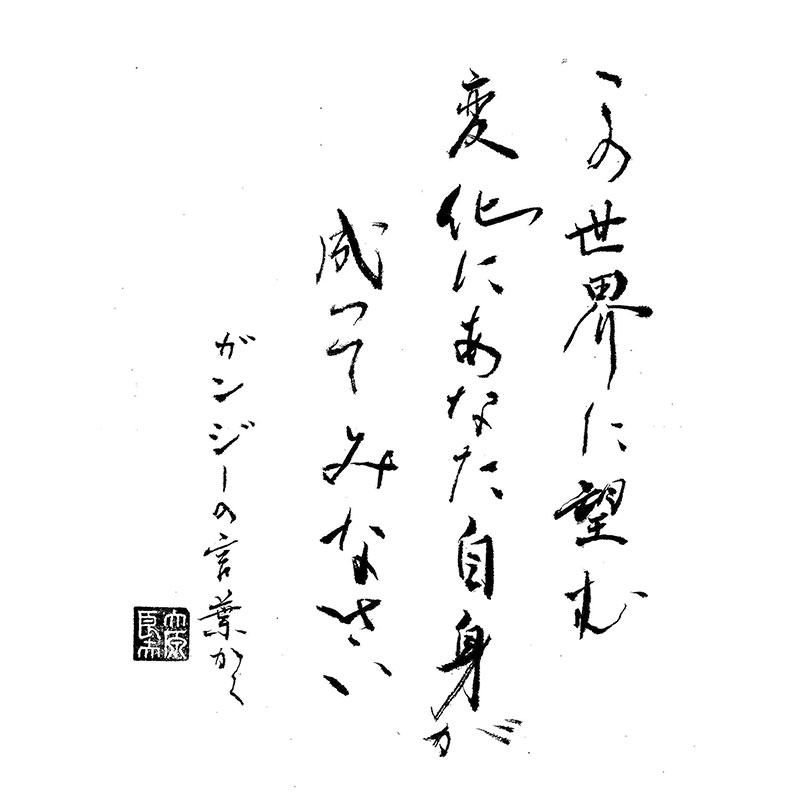 この世界に望む
変化にあなた自身が
成ってみなさい
ガンジーの言葉かく